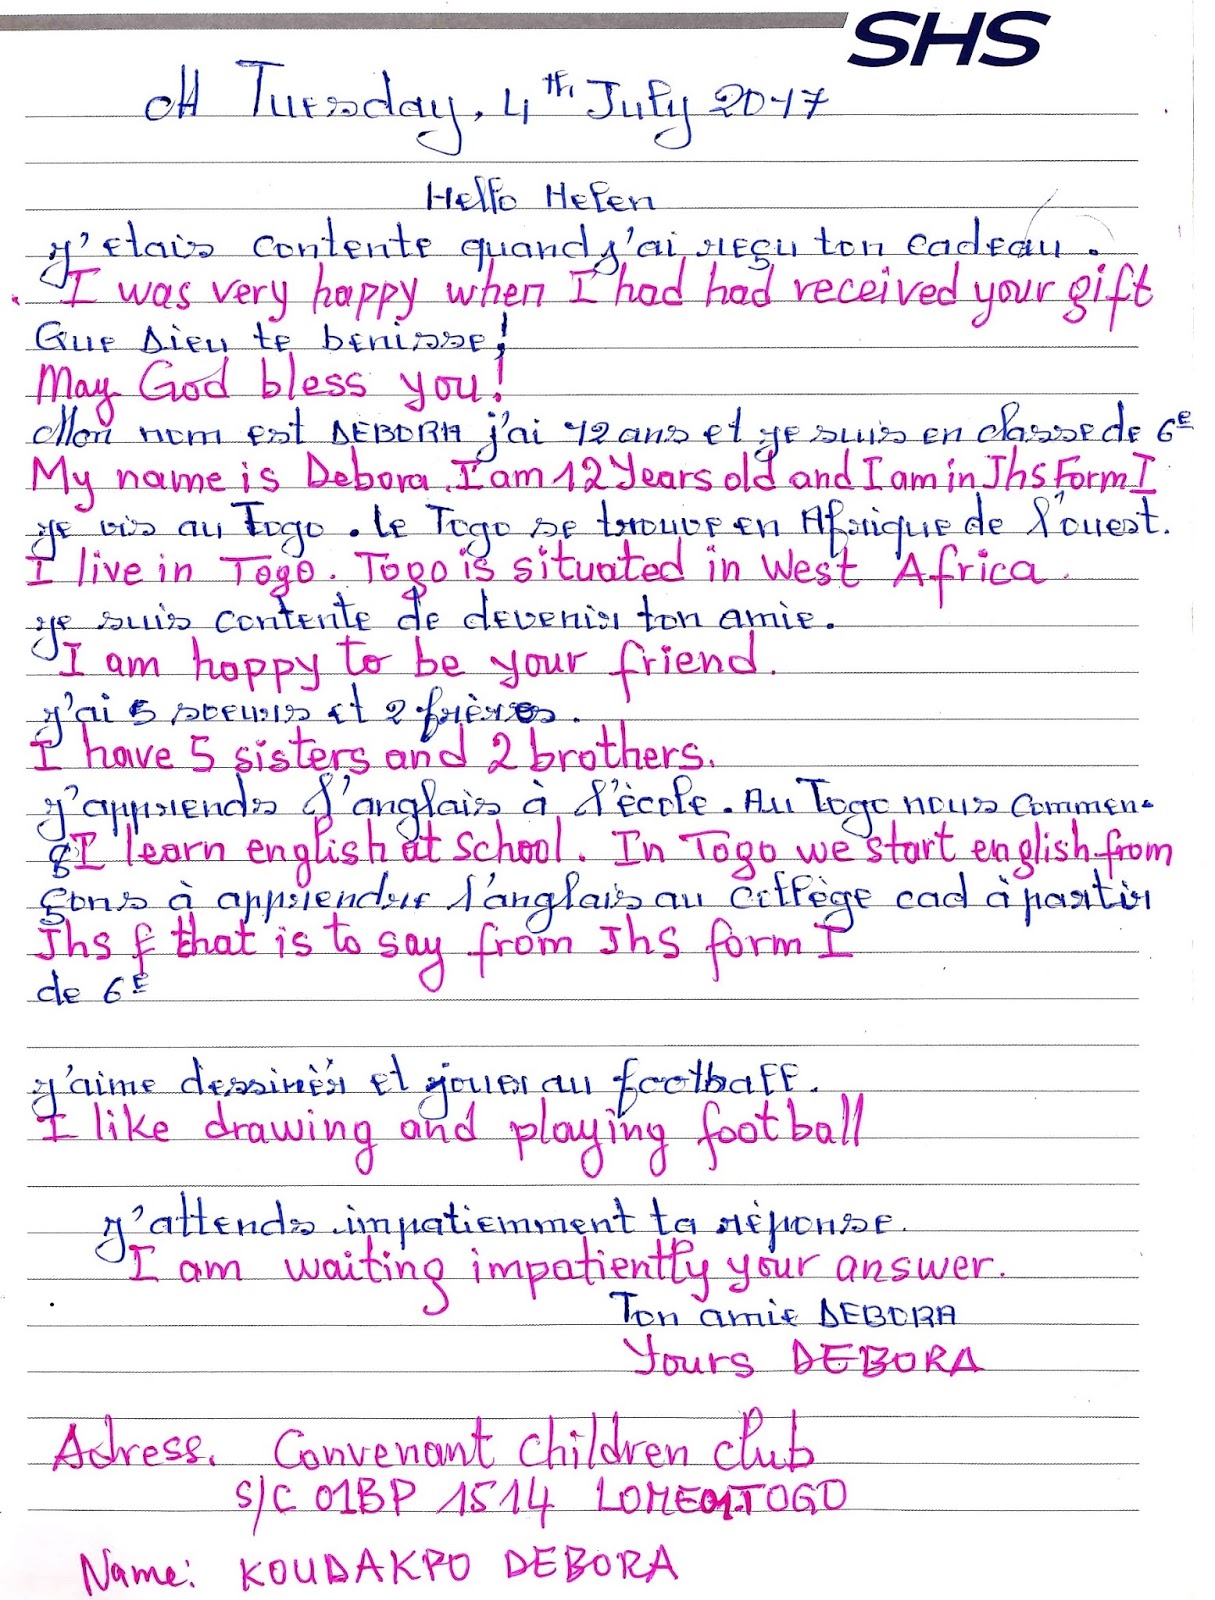 SHS
Tuesday, 4th July 2017
Hello Helen
j'etais contente quand j'ai reçu ton cadeau.
I was very happy when I had had received your gift
Que Dieu te benisse!
May God bless you!
Mon nom est DEBORA j'ai 12 ans et je suis en classe de 6e
My name is Debora. I am 12 Years old and I am in Jhs Form I
je vis au Togo. le Togo se trouve en Afrique de l'ouest.
I live in Togo. Togo is situated in West Africa.
je suis contente de devenir ton amie.
I am happy to be your friend.
j'ai 5 soeurs et 2 frères.
I have 5 sisters and 2 brothers.
j'apprends l'anglais à l'école. Au Togo nous commen-
I learn english at school. In Togo we start english from
çons à apprendre l'anglais au collège cad à partir
Jhs f that is to say from Jhs form I
de 6e
j'aime dessinèr et jouer au football.
I like drawing and playing football
j'attends impatiemment ta réponse.
I am waiting impatiently your answer.
Ton amie DEBORA
Yours DEBORA
Adress. Convenant children club
S/C 01BP 1514 LOME01.TOGO
Name: KOUDAKPO DEBORA